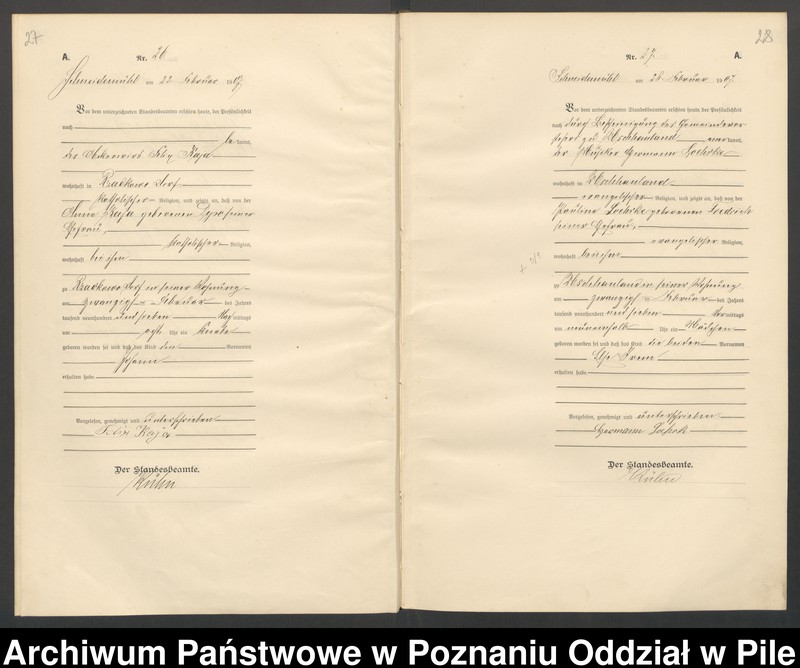 27
A.
Nr. 26
Schneidemühl am 22 Februar 1907
Vor dem unterzeichneten Standesbeamten erschien heute, der Persönlichkeit
nach
be kannt,
der Ackerwirt Felix Kaja
wohnhaft in Radkowo Dorf
katholischer Religion, und zeigte an, daß von der
Anna Kaja geborenen seiner
Ehefrau,
katholischer Religion,
wohnhaft bei ihm
zu Radkowo Dorf in seiner Wohnung
am zwanzigsten Februar des Jahres
tausend neunhundert und sieben Nachmittags
um acht Uhr ein Knabe
geboren worden sei und daß das Kind den Vornamen
Johann
erhalten habe
Vorgelesen, genehmigt und unterschrieben
Felix Kaja
Der Standesbeamte.
28
Nr. 27
A.
Schneidemühl am 26 Februar 1907.
Vor dem unterzeichneten Standesbeamten erschien heute, der Persönlichkeit
nach durch Bescheinigung des Gemeindevor
steher zu Uschhauland anerkannt,
der Häusler Hermann
wohnhaft in Uschhauland
evangelischer Religion, und zeigte an, daß von der
Pauline geborenen
seiner Ehefrau,
evangelischer Religion,
wohnhaft bei ihm
zu Uschhauland in seiner Wohnung
am zwanzigsten Februar des Jahres
tausend neunhundert und sieben Vormittags
um neuneinhalb Uhr ein Mädchen
geboren worden sei und daß das Kind die beiden Vornamen
Else Irene
erhalten habe
Vorgelesen, genehmigt und unterschrieben
Hermann
Der Standesbeamte.
Archiwum Państwowe w Poznaniu Oddział w Pile